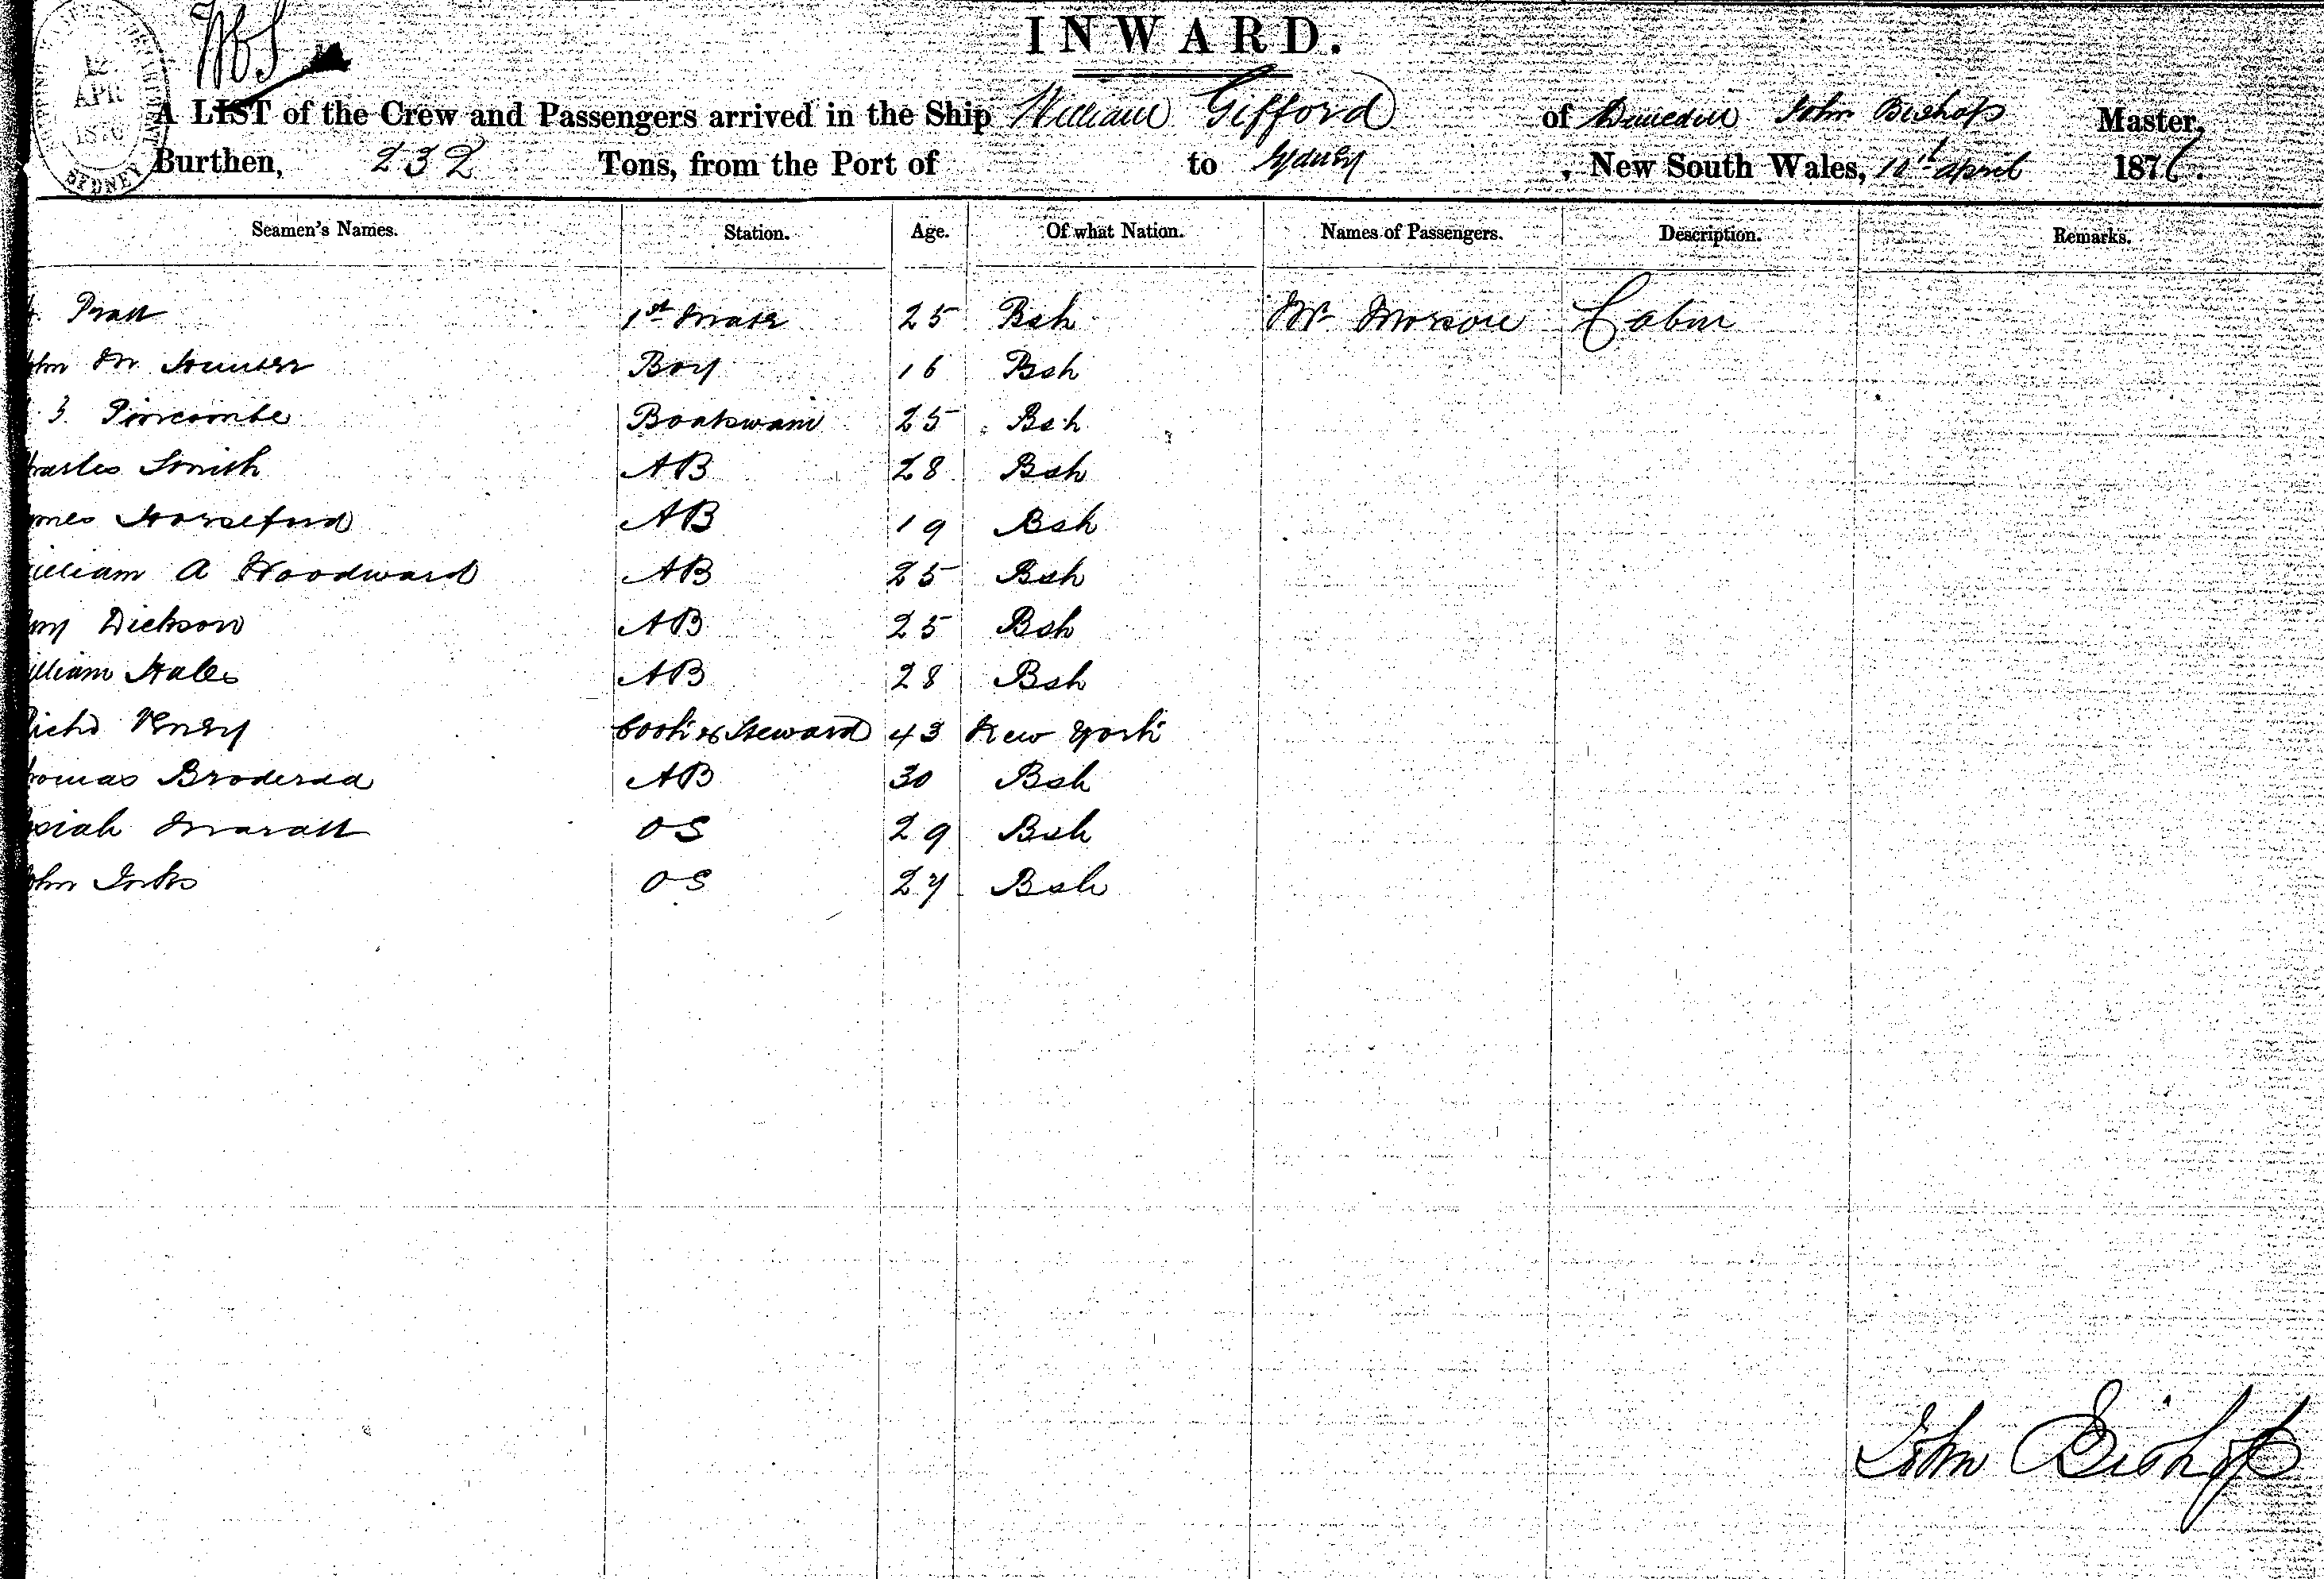 12
APR
1876
SYDNEY
INWARD.
A LIST of the Crew and Passengers arrived in the Ship William Gifford of Dunedin John Bishop Master,
Burthen, 232 Tons, from the Port of to Sydney, New South Wales, 10th April 1876.
Seamen's Names. Station. Age. Of what Nation. Names of Passengers. Description. Remarks.
Pratt 1st Mate 25 Bsh Mr Cabin
ohn M Hunter Boy 16 Bsh
Pincombe Boatswain 25 Bsh
harles Smith AB 28 Bsh
ames Horseford AB 19 Bsh
illiam A Woodward AB 25 Bsh
Dickson AB 25 Bsh
illiam Hales AB 28 Bsh
ichd Cook & Steward 43 New York
homas AB 30 Bsh
siah Maratt OS 29 Bsh
ohn Inks OS 27 Bsh
John Bishop